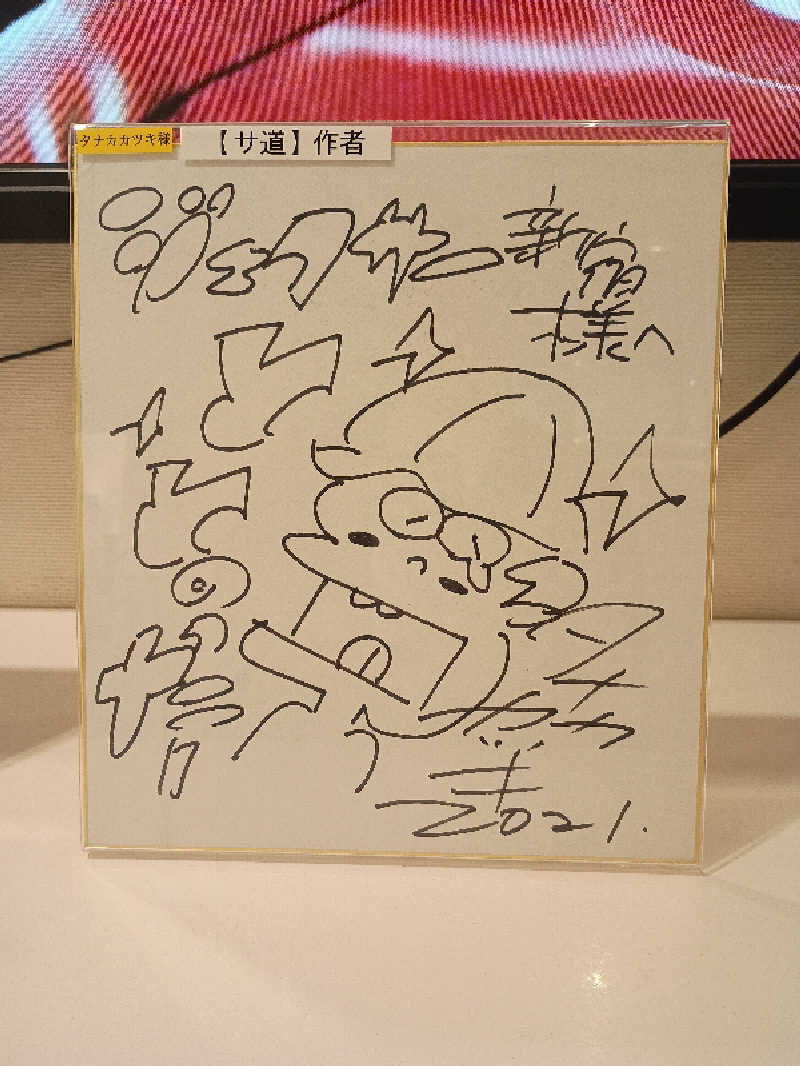 タナカカツキ様
【サ道】作者
ジェクサー新宿
様へ
と
との
タナカ
カツキ
2021.